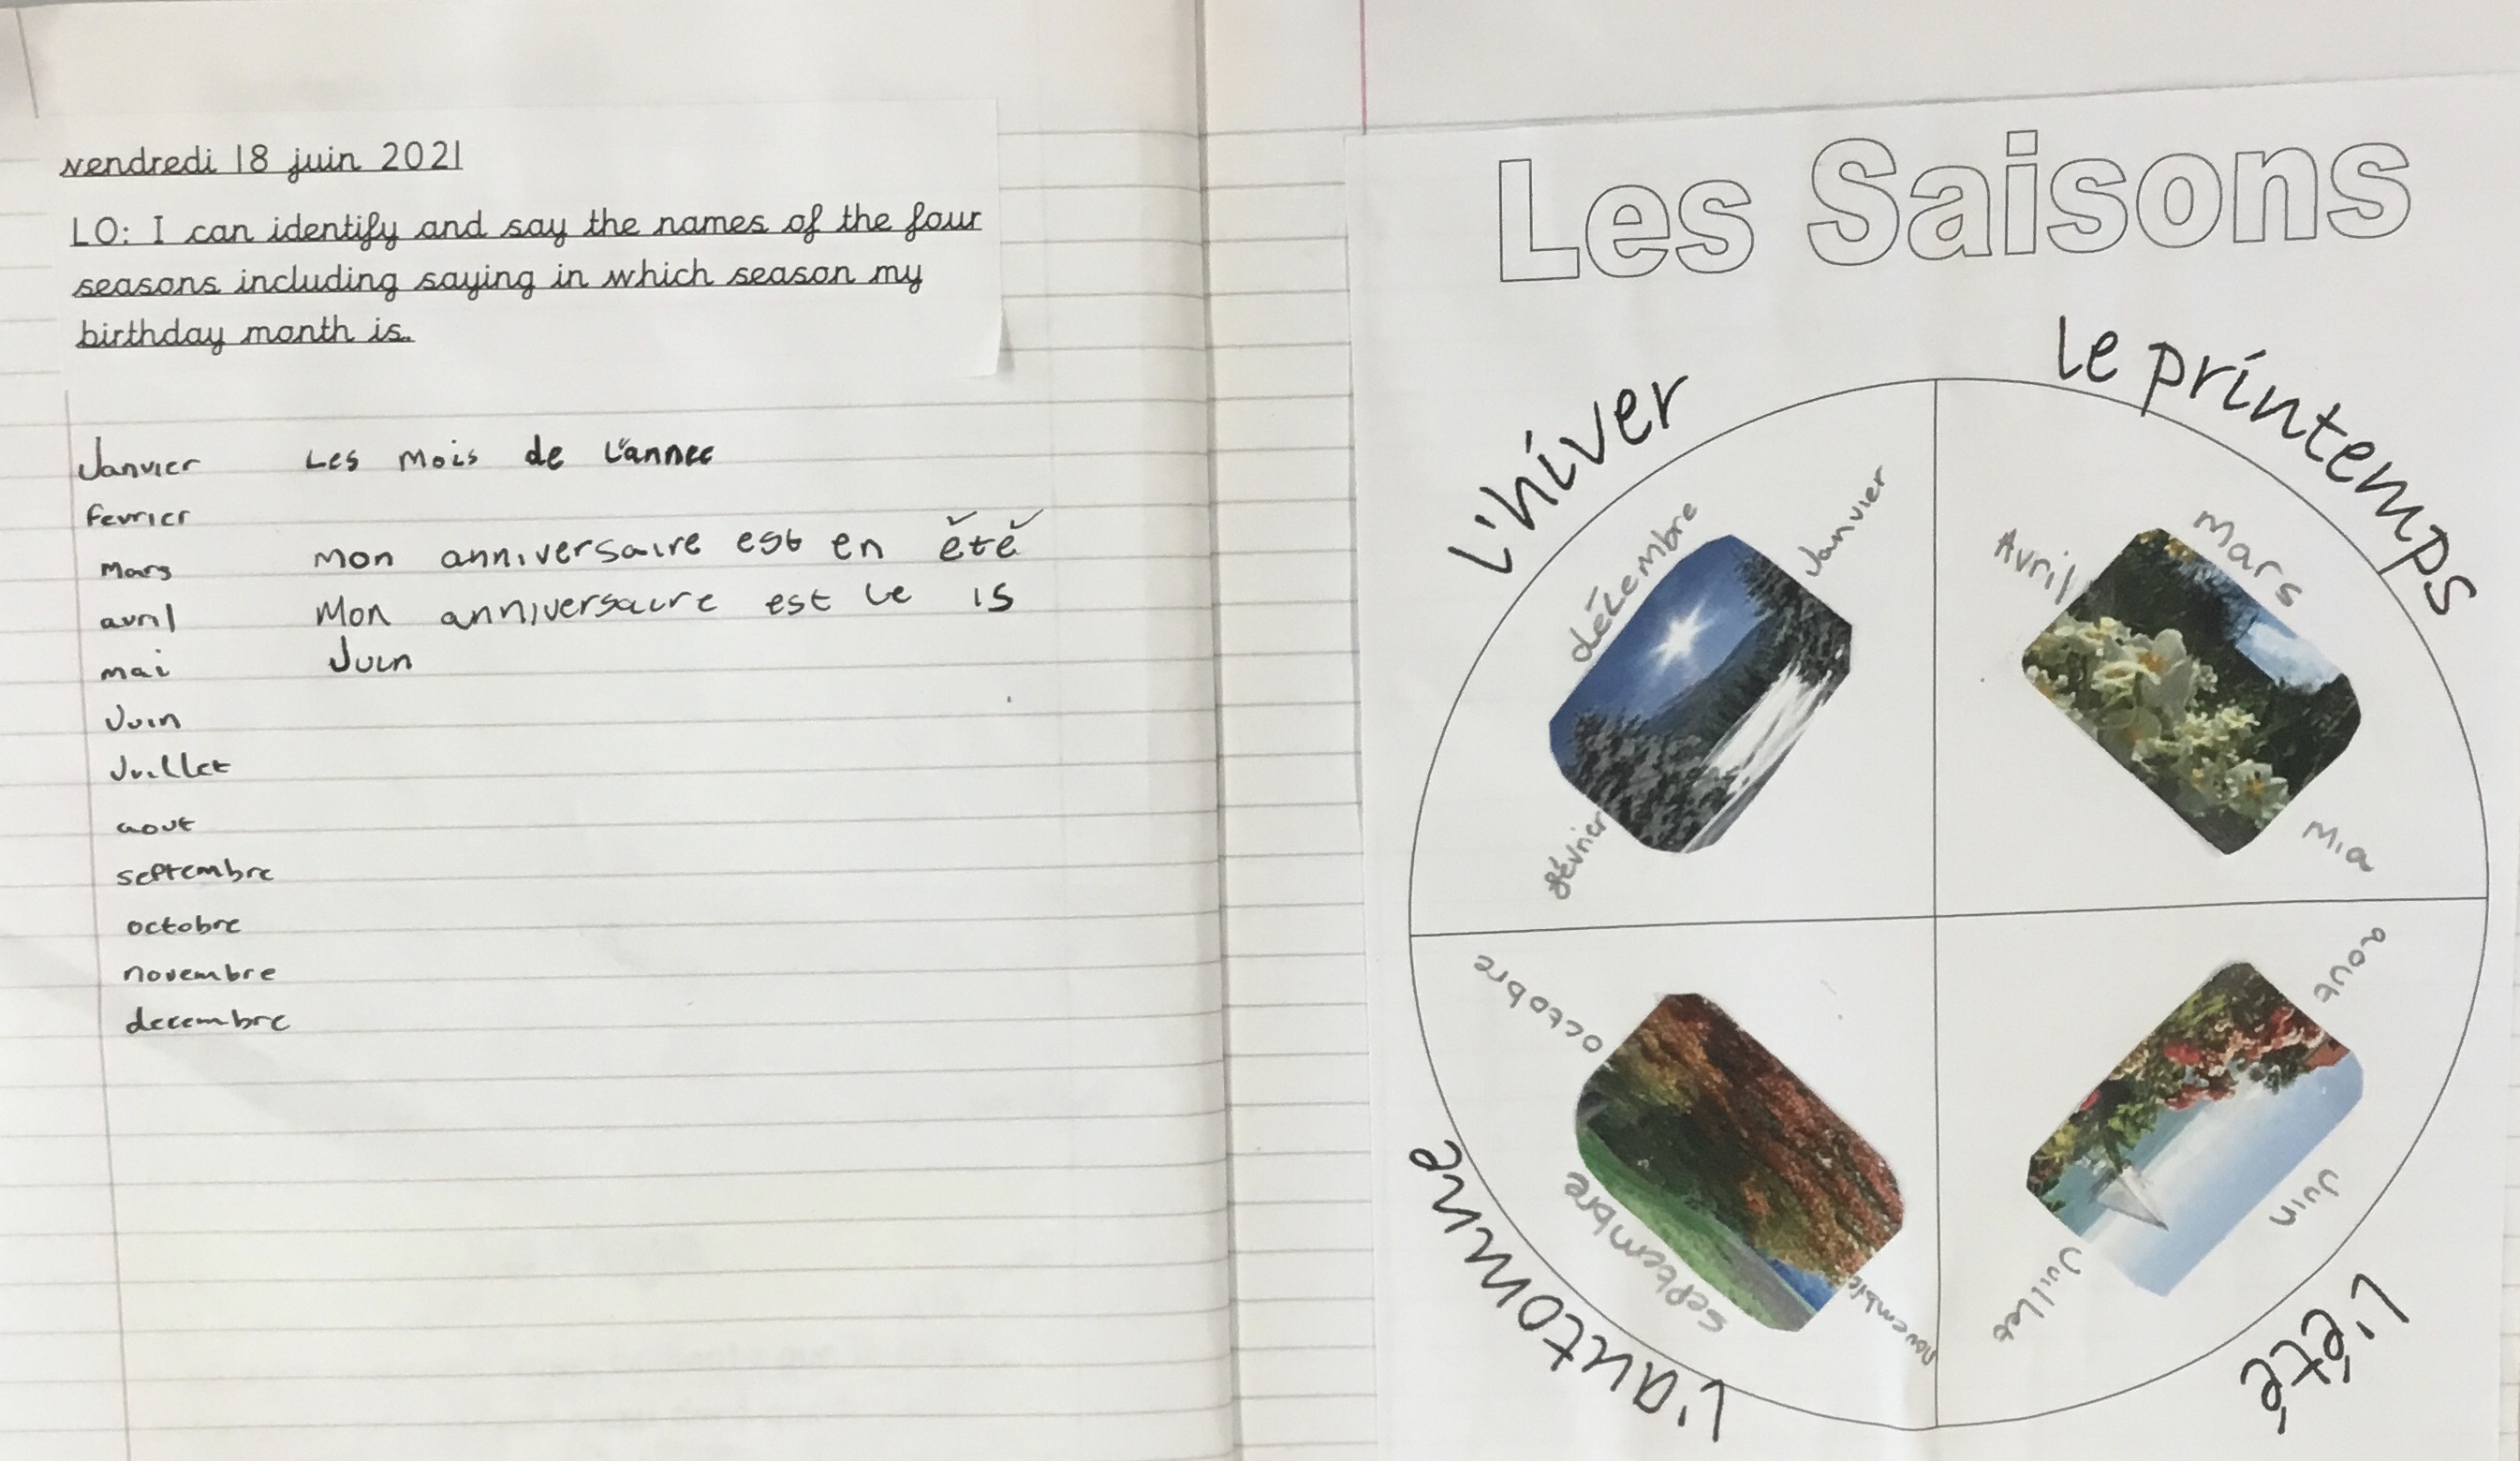 vendredi 18 juin 2021
LO: I can identify and say the names of the four
seasons including saying in which season my
birthday month is.
Janvier
Les mois de l'annee
fevrier
Mars
mon anniversaire est en été
avril
Mon anniversaire est le 15
mai
Juin
Juin
Juillet
aout
septembre
octobre
novembre
decembre
Les Saisons
L'hiver
décembre
Janvier
février
le printemps
Avril
Mars
Mia
L'été
aout
Juin
Juillet
L'automne
octobre
Septembre
novembre